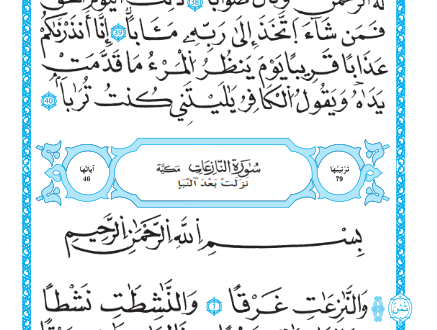 لَهُ الرَّحْمَٰنُ وَقَالَ صَوَابًا ۝٣٨ ذَٰلِكَ الْيَوْمُ الْحَقُّ
فَمَن شَآءَ اتَّخَذَ إِلَىٰ رَبِّهِۦ مَـَٔابًا ۝٣٩ إِنَّآ أَنذَرْنَٰكُمْ
عَذَابًا قَرِيبًا يَوْمَ يَنظُرُ الْمَرْءُ مَا قَدَّمَتْ
يَدَاهُ وَيَقُولُ الْكَافِرُ يَٰلَيْتَنِي كُنتُ تُرَٰبًۢا ۝40
آيَاتُهَا 46 سُورَةُ النَّازِعَاتِ مَكِّيَّة تَرْتِيبُهَا 79
نَزَلَتْ بَعْدَ النَّبَإِ
بِسْمِ اللَّهِ الرَّحْمَٰنِ الرَّحِيمِ
وَالنَّٰزِعَٰتِ غَرْقًا ۝١ وَالنَّٰشِطَٰتِ نَشْطًا